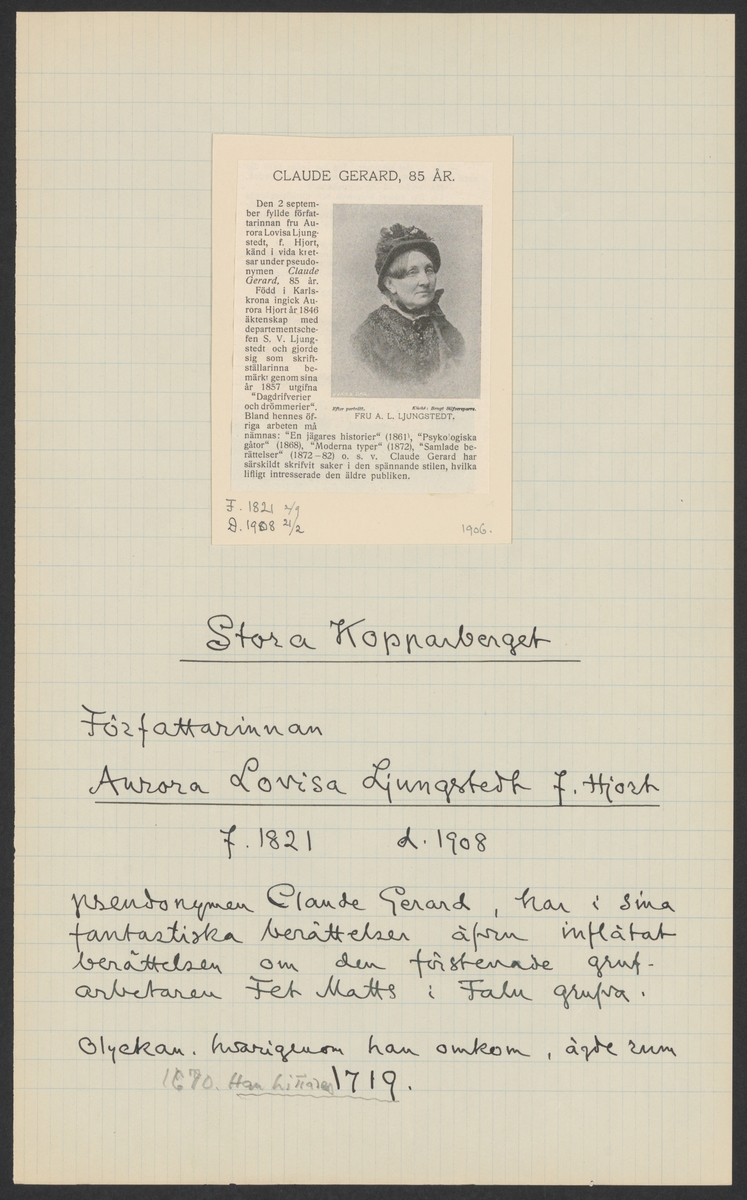 CLAUDE GERARD, 85 ÅR.
Den 2 septem-
ber fyllde förfat-
tarinnan fru Au-
rora Lovisa Ljung-
stedt, f. Hjort,
känd i vida kret-
sar under pseudo-
nymen Claude
Gerard, 85 år.
Född i Karls-
krona ingick Au-
rora Hjort år 1846
äktenskap med
departementsche-
fen S. V. Ljung-
stedt och gjorde
sig som skrift-
ställarinna be-
märkt genom sina
år 1857 utgifna
"Dagdrifverier
och drömmerier".
Bland hennes öf-
riga arbeten må
Efter porträtt. Kliché: Bengt Silfversparre.
FRU A. L. LJUNGSTEDT.
nämnas: "En jägares historier" (1861), "Psykologiska
gåtor" (1868), "Moderna typer" (1872), "Samlade be-
rättelser" (1872–82) o. s. v. Claude Gerard har
särskildt skrifvit saker i den spännande stilen, hvilka
lifligt intresserade den äldre publiken.
F. 1821 2/9
D. 1908 21/2
1906.
Stora Kopparberget
Författarinnan
Aurora Lovisa Ljungstedt f. Hjort
f. 1821 d. 1908
pseudonymen Claude Gerard, har i sina
fantastiska berättelser äfven inflätat
berättelsen om den förstenade gruf-
arbetaren Fet Matts i Falu grufva.
Olyckan. hvarigenom han omkom, ägde rum
1670. Han hittades 1719.